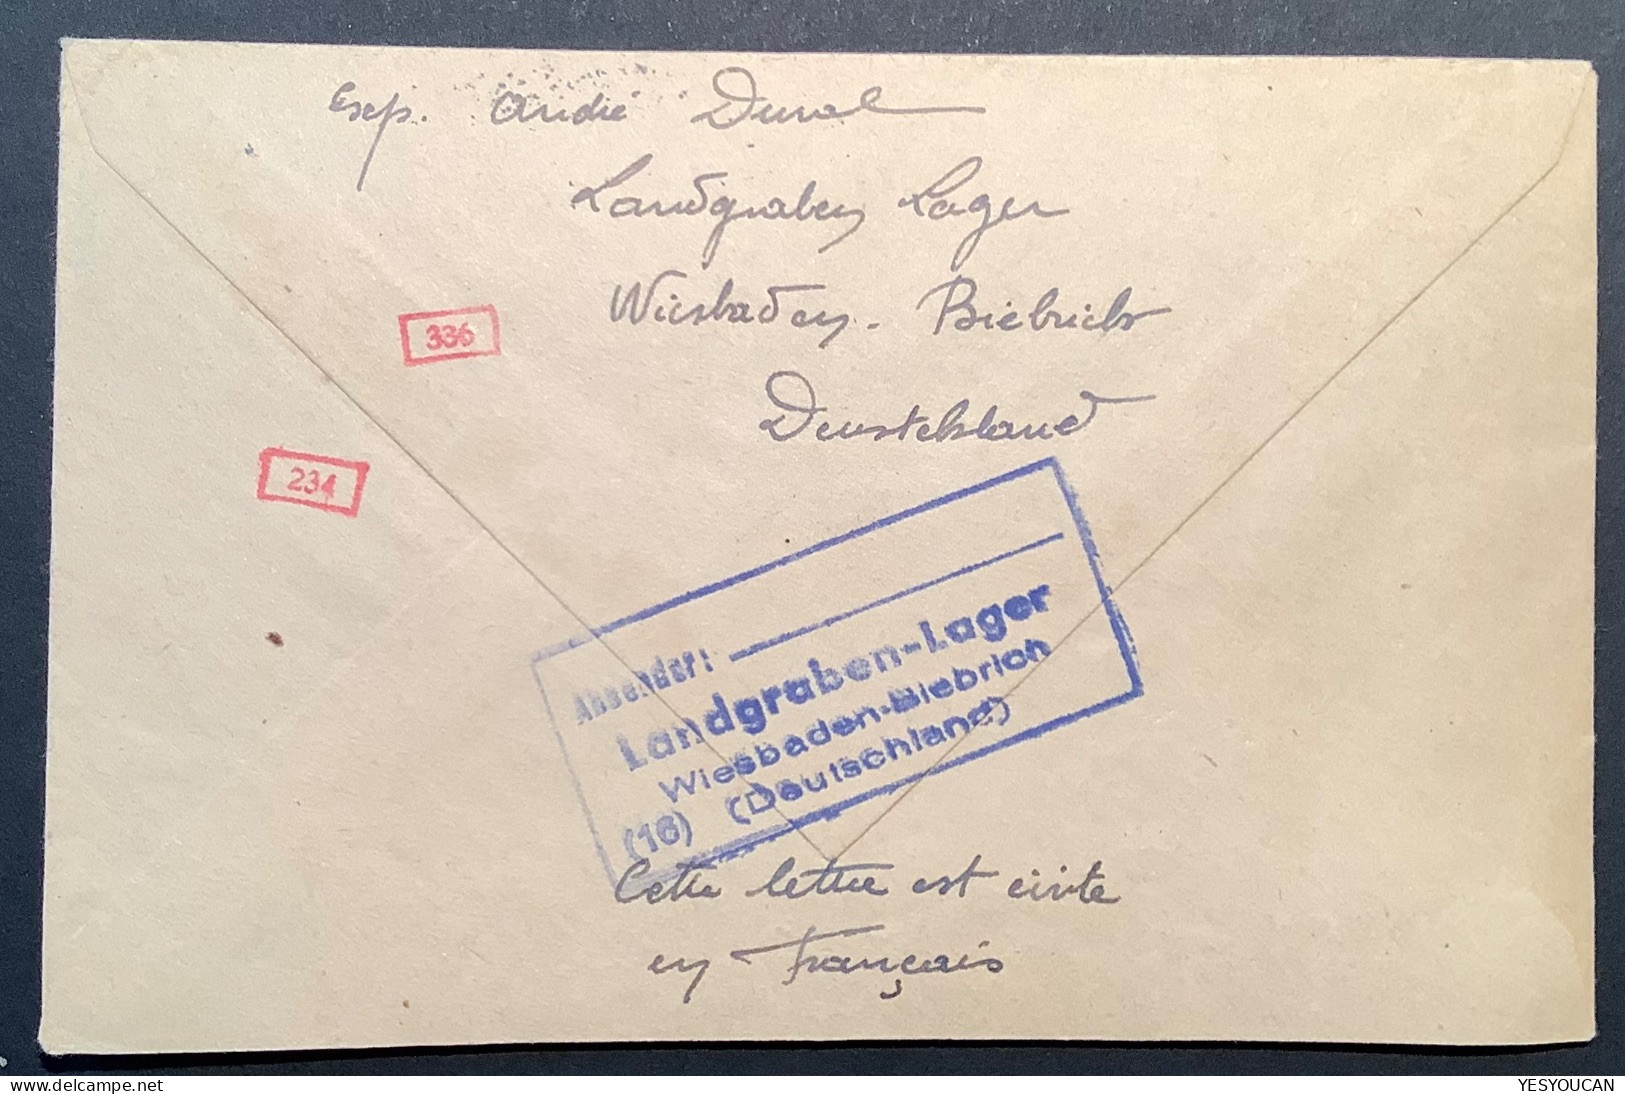 Exp. André Duval
Landgraben Lager
Wiesbaden. Biebrich
336
Deustchland
234
Absender:
Landgraben-Lager
Wiesbaden-Biebrich
(16) (Deutschland)
Cette lettre est écrite
en français
YESYOUCAN